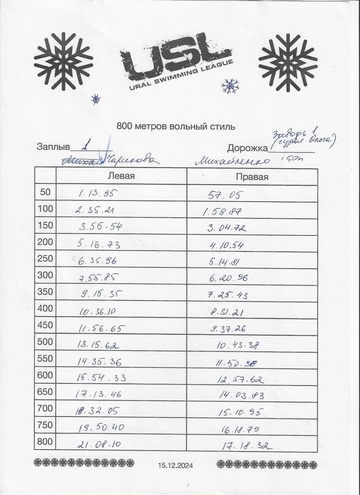 USL
URAL SWIMMING LEAGUE
800 метров вольный стиль
Заплыв 1 Дорожка
Михайленко
Левая Правая
50 1.13.95 57.05
100 2.35.21 1.59.87
150 3.56.54 3.04.72
200 5.16.73 4.10.54
250 6.35.96 5.14.81
300 7.55.85 6.20.96
350 9.15.35 7.25.43
400 10.36.10 8.31.21
450 11.56.65 9.37.26
500 13.15.62 10.43.38
550 14.35.36 11.50.38
600 15.54.33 12.57.62
650 17.13.46 14.03.83
700 18.32.05 15.10.95
750 19.50.40 16.18.70
800 21.08.10 17.18.32
15.12.2024